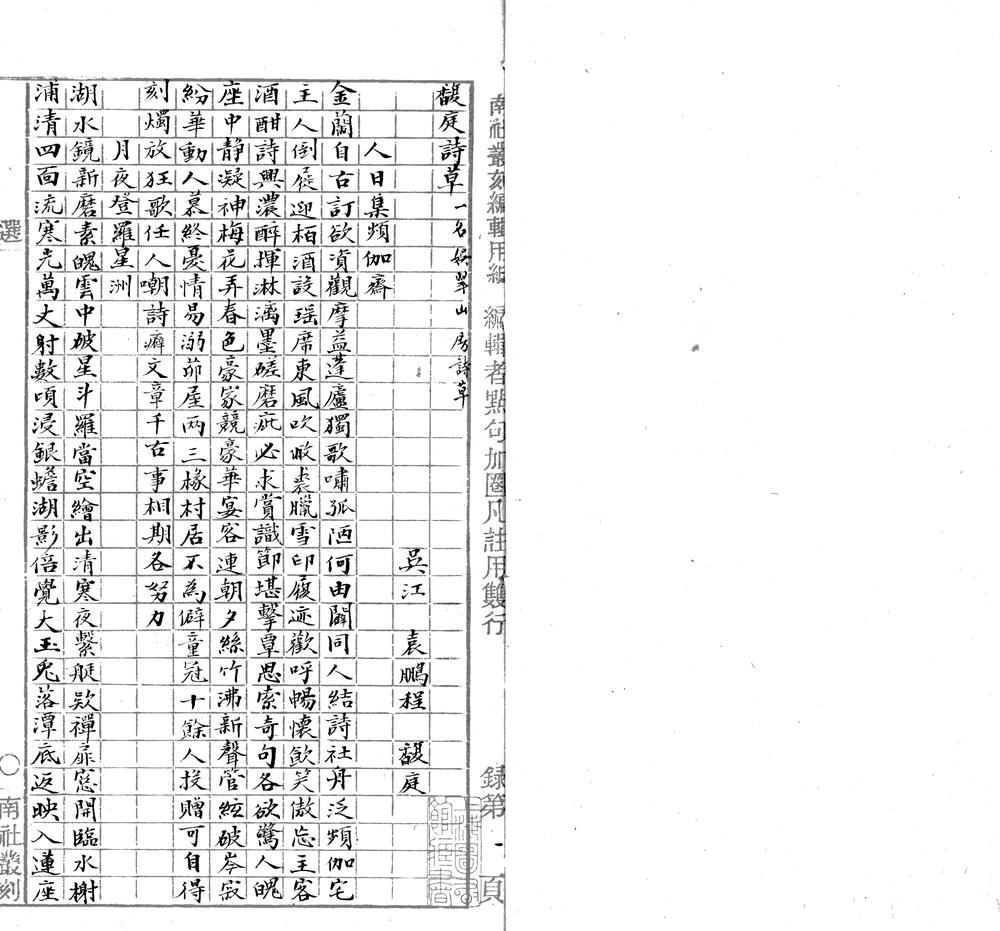 南社叢刻編輯用紙 編輯者點句加圈凡註用雙行 録第一頁
馥庭詩草 一名 翠山房詩草
吳江 袁鵬程 馥庭
人日集頻伽齋
金蘭自古訂欲資觀摩益蓬廬獨歌嘯孤陋何由闢同人結詩社舟泛頻伽宅
主人倒屣迎栢酒設瑶席東風吹敝裘臘雪印履迹歡呼暢懷飲笑傲忘主客
酒酣詩興濃醉揮淋漓墨磋磨疵必求賞識節堪擊覃思索奇句各欲驚人魄
座中靜凝神梅花弄春色豪家競豪華宴客連朝夕絲竹沸新聲管絃破岑寂
紛華動人慕終憂情易溺茆屋两三椽村居不為僻童冠十餘人投贈可自得
刻燭放狂歌任人嘲詩癖文章千古事相期各努力
月夜登羅星洲
湖水鏡新磨素魄雲中破星斗羅當空繪出清寒夜繫艇欵禪扉窓開臨水榭
浦清四面流寒光萬丈射數頃浸銀蟾湖影倍覺大玉兎落潭底返映入蓮座
選 〇 南社叢刻